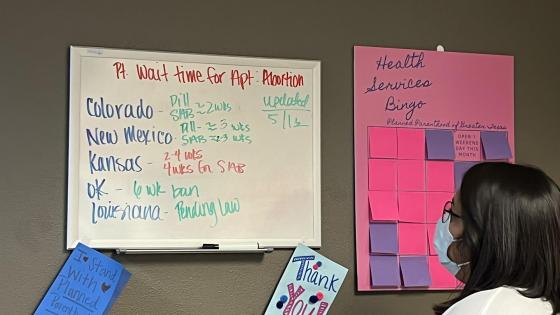 Pt. Wait time for Apt: Abortion
updated
5/13
Colorado - Pill
SAB ≈ 2 wks
New Mexico - Pill - ≈ 3 wks
SAB ≈ 3 wks
Kansas - 2-4 wks
4 wks for SAB
OK - 6 wk ban
Louisiana - Pending law
Health
Services
Bingo
Planned Parenthood of Greater Texas
OPEN 1
WEEKEND
DAY THIS
MONTH
I ♥ Stand
With ♥
Planned
Thank
You